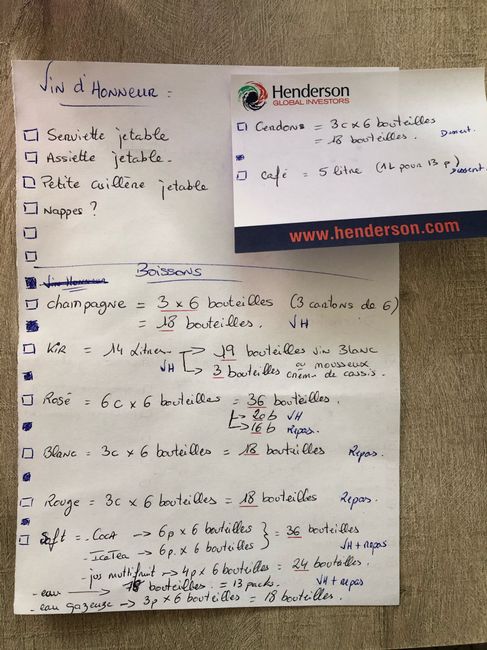 Vin d'Honneur :
Serviette jetable
Assiette jetable.
Petite cuillère jetable
Nappes ?
Henderson
GLOBAL INVESTORS
Cerdons = 3c x 6 bouteilles
= 18 bouteilles. Dessert.
Café = 5 litre (1L pour 13 p) Dessert.
www.henderson.com
Boissons
champagne = 3 x 6 bouteilles (3 cartons de 6)
= 18 bouteilles. VH
Kir = 14 Litres → 19 bouteilles vin Blanc
ou mousseux
VH → 3 bouteilles crèm. de cassis.
Rosé = 6c x 6 bouteilles = 36 bouteilles.
→ 20b VH
→ 16b Repas.
Blanc = 3c x 6 bouteilles = 18 bouteilles Repas.
Rouge = 3c x 6 bouteilles = 18 bouteilles Repas.
Soft = - Coca → 6p x 6 bouteilles } = 36 bouteilles
- IceTea → 6p x 6 bouteilles VH + repas
- jus multifruit → 4p x 6 bouteilles = 24 bouteilles.
- eau → 78 bouteilles. = 13 packs. VH + repas
- eau gazeuse → 3p x 6 bouteilles = 18 bouteilles.